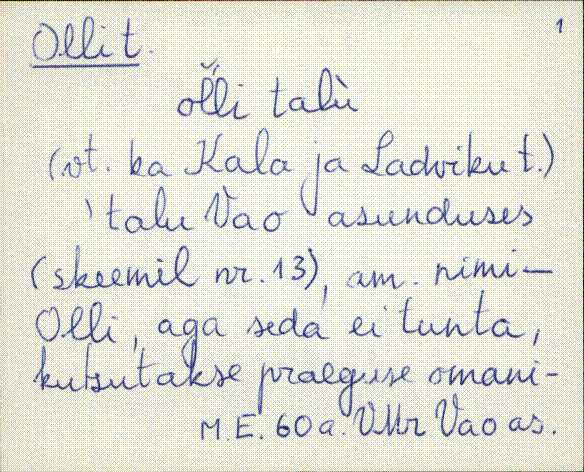 1
Olli t.
ol̆li talù
(vt. ka Kala ja Ladviku t.)
'talu Vao asunduses
(skeemil nr. 13), am. nimi—
Olli, aga seda ei tunta,
kutsutakse praeguse omani-
M.E. 60 a. VMr Vao as.